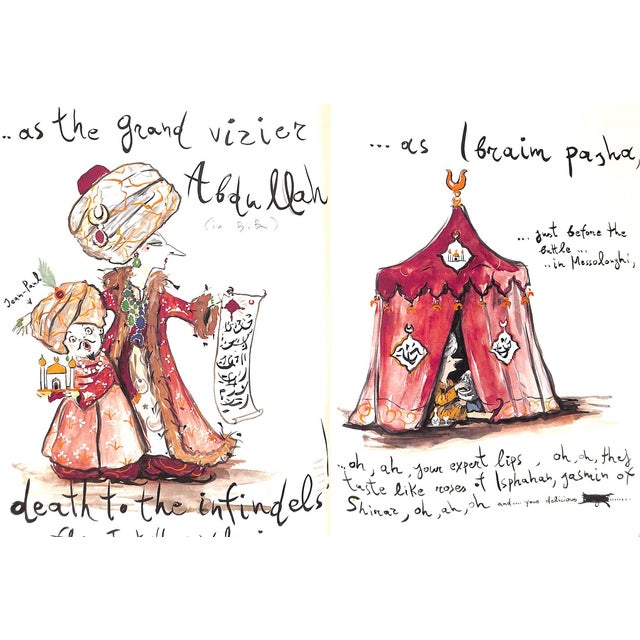 .. as the grand vizier
Abdullah
Jean-Paul
death to the infindels
... as Ibraim pasha,
... just before the
battle ...
.. in Messolonghi,
... oh, ah, your expert lips, oh, oh, they
taste like roses of Isphahan, jasmin of
Shiraz, oh, ah, oh and .... your delicious